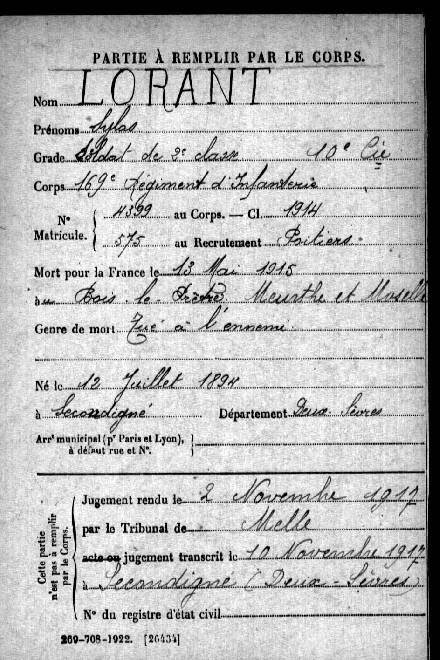 PARTIE À REMPLIR PAR LE CORPS.
Nom LORANT
Prénoms Sylas
Grade Soldat de 2e classe 10e Cie
Corps 169e Régiment d'Infanterie
N° Matricule. 4399 au Corps. — Cl. 1914
575 au Recrutement Poitiers
Mort pour la France le 13 Mai 1915
à au Bois-le-Prêtre Meurthe et Moselle
Genre de mort Tué à l'ennemi
Né le 12 Juillet 1894
à Secondigné Département Deux-Sèvres
Arrt municipal (pr Paris et Lyon), à défaut rue et N°.
Cette partie n'est pas à remplir par le Corps.
Jugement rendu le 2 Novembre 1917
par le Tribunal de Melle
acte ou jugement transcrit le 10 Novembre 1917
à Secondigné (Deux-Sèvres)
N° du registre d'état civil
269-708-1922. [26434]